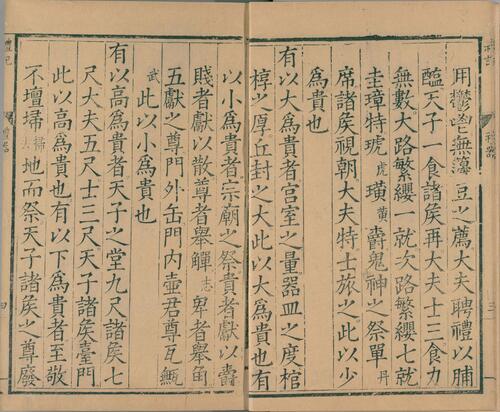 用鬱鬯無籩豆之薦大夫聘禮以脯
醢天子一食諸矦再大夫士三食力
無數大路繁纓一就次路繁纓七就
圭璋特琥虎璜黄爵鬼神之祭單丹
席諸矦視朝大夫特士旅之此以少
為貴也
有以大為貴者宮室之量器皿之度棺
椁之厚丘封之大此以大為貴也有
以小為貴者宗廟之祭貴者獻以爵
賤者獻以散尊者舉觶志卑者舉角
五獻之尊門外缶門內壺君尊瓦甒
武此以小為貴也
有以高為貴者天子之堂九尺諸矦七
尺大夫五尺士三尺天子諸矦臺門
此以高為貴也有以下為貴者至敬
不壇埽掃去地而祭天子諸矦之尊廢
禮記
禮器
四